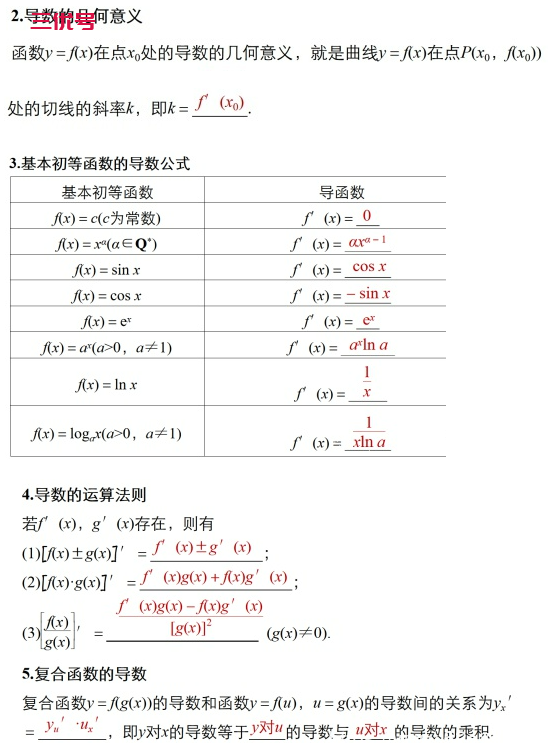 2.导数的几何意义
三优号
函数y = f(x)在点x₀处的导数的几何意义，就是曲线y = f(x)在点P(x₀，f(x₀))
处的切线的斜率k，即k = f′(x₀).
3.基本初等函数的导数公式
基本初等函数 导函数
f(x) = c(c为常数) f′(x) = 0
f(x) = xᵅ(α∈Q*) f′(x) = αxᵅ⁻¹
f(x) = sin x f′(x) = cos x
f(x) = cos x f′(x) = − sin x
f(x) = eˣ f′(x) = eˣ
f(x) = aˣ(a>0，a≠1) f′(x) = aˣln a
f(x) = ln x f′(x) = 1/x
f(x) = logₐx(a>0，a≠1) f′(x) = 1/(xln a)
4.导数的运算法则
若f′(x)，g′(x)存在，则有
(1)[f(x)±g(x)]′ = f′(x)±g′(x)；
(2)[f(x)·g(x)]′ = f′(x)g(x) + f(x)g′(x)；
(3)[f(x)/g(x)]′ = (f′(x)g(x) − f(x)g′(x))/[g(x)]² (g(x)≠0).
5.复合函数的导数
复合函数y = f(g(x))的导数和函数y = f(u)，u = g(x)的导数间的关系为yₓ′
= yᵤ′·uₓ′，即y对x的导数等于y对u的导数与u对x的导数的乘积.